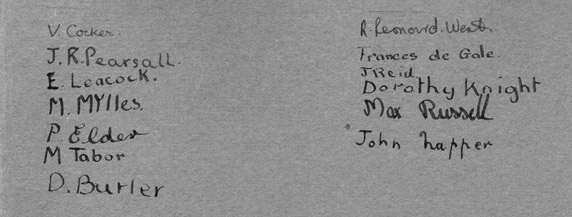 V. Cocker.
J.R. Pearsall.
E. Leacock.
M. Mylles.
P Elder
M Tabor
D. Butler
R. Leonard. West.
Frances de Gale.
J Reid
Dorothy Knight
Max Russell
John Napper